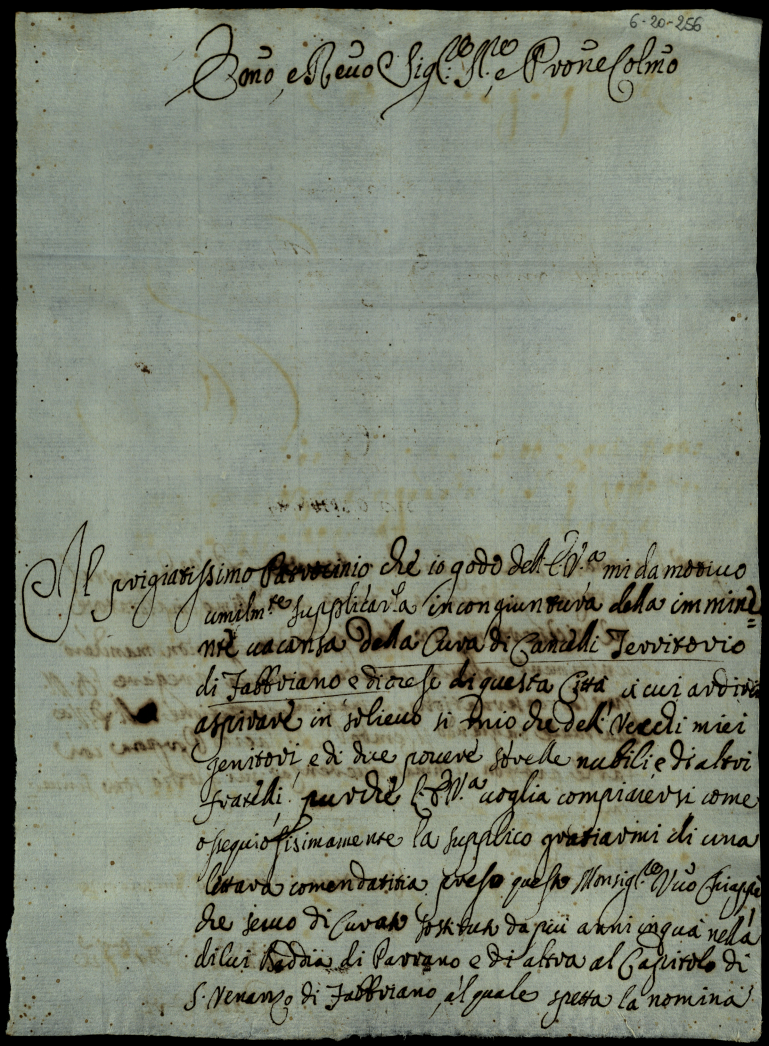 6-20-256
Emo, e Revo Sig.re S.re e Prone Colmo
Il prigiatissimo Patrocinio che io godo dell'E.V.a mi da motiuo
umilm.te supplicarla in congiuntura della immine=
nte uacanza della Cura di Cancelli Territorio
di Fabbriano e diocesi di questa Città à cui ardirei
aspirare in solieuo sì mio che dell' Vecchi miei
genitori, e di due pouere sorelle nubili, e di altri
fratelli, purche l'E.V.a uoglia compiacersi come
ossequiosissimamente la supplico gratiarmi di una
lettara comendatitia preso questo Monsig.re Vuo Chiappè
che seruo di Curato sostituto da più anni in quà nella
di lui Baddia di Parrano e di altra al Capitolo di
S. Venanzo di Fabbriano, al quale spetta la nomina